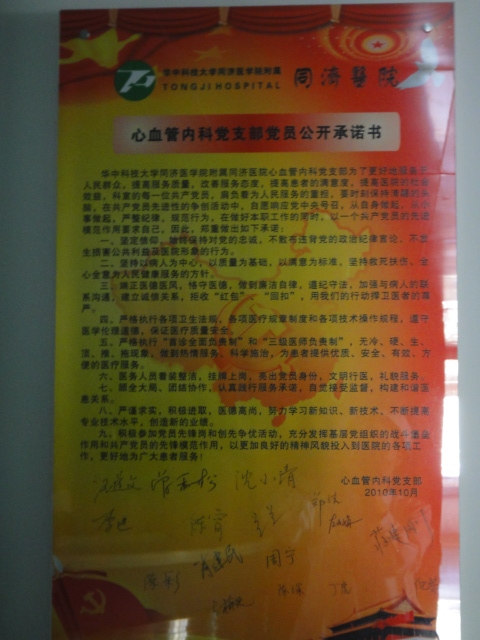 华中科技大学同济医学院附属
TONGJI HOSPITAL
同濟醫院
心血管内科党支部党员公开承诺书
华中科技大学同济医学院附属同济医院心血管内科党支部为了更好地服务于
人民群众，提高服务质量，改善服务态度，提高患者的满意度，提高医院的社会
效益，科室的每一位共产党员，肩负着为人民服务的重担，要时刻保持清醒的头
脑，在共产党员先进性的争创活动中，自愿响应党中央号召，从自身做起，从小
事做起，严整纪律，规范行为，在做好本职工作的同时，以一个共产党员的先进
模范作用要求自己，因此，郑重做出如下承诺：
一、坚定信仰，始终保持对党的忠诚，不散布违背党的政治纪律言论，不发
生损害公共利益及医院形象的行为。
二、坚持以病人为中心，以质量为基础，以满意为标准，坚持救死扶伤、全
心全意为人民健康服务的方针。
三、端正医德医风，恪守医德，做到廉洁自律，遵纪守法，加强与病人的联
系沟通，建立诚信关系，拒收“红包”、“回扣”，用我们的行动捍卫医者的尊
严。
四、严格执行各项卫生法规、各项医疗规章制度和各项技术操作规程，遵守
医学伦理道德，保证医疗质量安全。
五、严格执行“首诊全面负责制”和“三级医师负责制”，无冷、硬、生、
顶、推、拖现象，做到热情服务、科学施治，为患者提供优质、安全、有效、方
便的医疗服务。
六、医务人员着装整洁，挂牌上岗，亮出党员身份，文明行医、礼貌服务。
七、顾全大局、团结协作，认真践行服务承诺，自觉接受监督，构建和谐医
患关系。
八、严谨求实，积极进取，医德高尚，努力学习新知识、新技术，不断提高
专业技术水平，创造新的业绩。
九、积极参加党员先锋岗和创先争优活动，充分发挥基层党组织的战斗堡垒
作用和共产党员的先锋模范作用，以更加良好的精神风貌投入到医院的各项工
作，更好地为广大患者服务！
心血管内科党支部
2010年10月
沈小清
李也
周宁